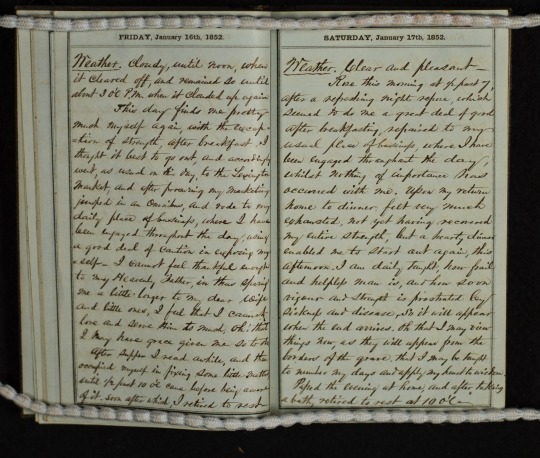 FRIDAY, January 16th, 1852.
Weather. Cloudy, until noon, when
it cleared off, and remained so until
about 3 oC P.M. when it clouded up again
This day finds me pretty
much myself again, with the excep-
ation of strength, after breakfast, I
thought it best to go out, and accordingly
went, as usual on this day, to the Lexington
Market, and after procuring my marketing
jumped in an Omnibus, and rode to my
daily place of business, where I have
been engaged throughout the day, using
a good deal of caution in exposing my
self— I cannot feel thankful enough
to my Heavenly Father, in thus sparing
me a little longer to my dear wife
and little ones, I feel that I cannot
love and serve Him to much, Oh! that
I may have grace given me so to do
After supper I read awhile, and then
occupied myself in fixing some little matters
until ½ past 10 oC came before being aware
of it. Soon after which, I retired to rest
SATURDAY, January 17th, 1852.
Weather. Clear and pleasant—
Rose this morning at ½ past 7,
after a refreshing nights repose, which
seemed to do me a great deal of good
After breakfasting, repaired to my
usual place of business, where I have
been engaged throughout the day,
whilst nothing of importance has
occurred with me. Upon my return
home to dinner, felt very much
exhausted, not yet having recovered
my entire strength, but a hearty dinner
enabled me to start out again, this
afternoon. I am daily taught, how frail
and helpless man is, and how soon
vigour and strength is prostrated by
sickness and disease, So it will appear
when the end arrives. Oh that I may view
things now, as they will appear from the
borders of the grave, that I may be taught
to number my days and apply my heart to wisdom.
Passed the evening at home, and after taking
a bath, retired to rest at 10 oC—